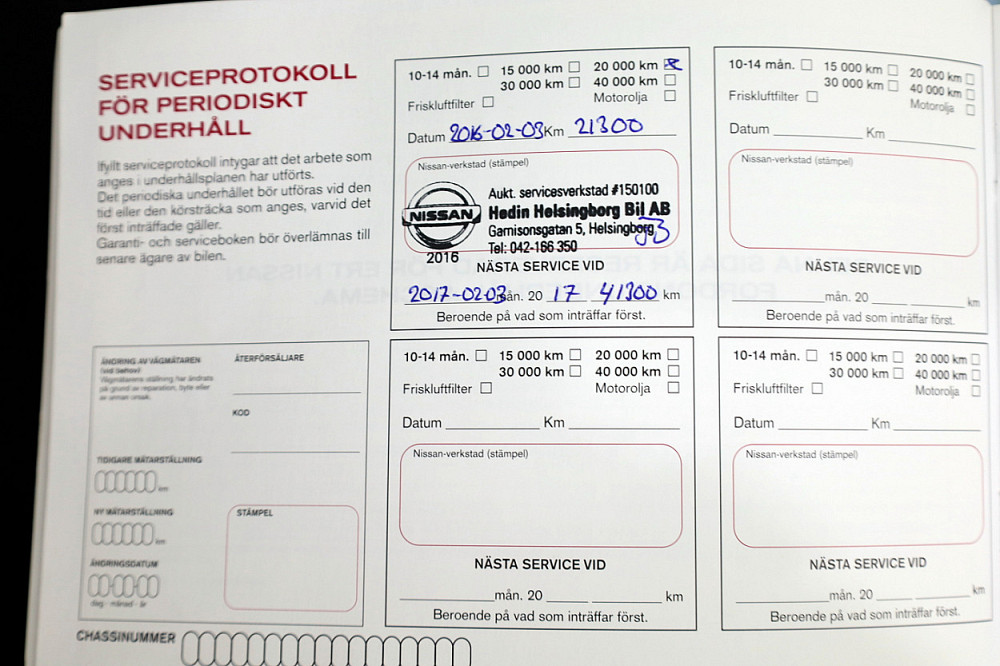 SERVICEPROTOKOLL
FÖR PERIODISKT
UNDERHÅLL
Ifyllt serviceprotokoll intygar att det arbete som
anges i underhållsplanen har utförts.
Det periodiska underhållet bör utföras vid den
tid eller den körsträcka som anges, varvid det
först inträffade gäller.
Garanti- och serviceboken bör överlämnas till
senare ägare av bilen.
10-14 mån. 15 000 km 20 000 km
30 000 km 40 000 km
Friskluftfilter Motorolja
Datum 2016-02-03 Km 21300
Nissan-verkstad (stämpel)
NISSAN
2016
Aukt. servicesverkstad #150100
Hedin Helsingborg Bil AB
Garnisonsgatan 5, Helsingborg
Tel: 042-166 350
NÄSTA SERVICE VID
2017-02-03 mån. 20 17 41300 km
Beroende på vad som inträffar först.
10-14 mån. 15 000 km 20 000 km
30 000 km 40 000 km
Friskluftfilter Motorolja
Datum Km
Nissan-verkstad (stämpel)
NÄSTA SERVICE VID
mån. 20 km
Beroende på vad som inträffar först.
ÄNDRING AV VÄGMÄTAREN
(vid behov)
Vägmätarens ställning har ändrats
på grund av reparation, byte eller
av annan orsak.
ÅTERFÖRSÄLJARE
KOD
TIDIGARE MÄTARSTÄLLNING
km
NY MÄTARSTÄLLNING
km
ÄNDRINGSDATUM
dag - månad - år
STÄMPEL
10-14 mån. 15 000 km 20 000 km
30 000 km 40 000 km
Friskluftfilter Motorolja
Datum Km
Nissan-verkstad (stämpel)
NÄSTA SERVICE VID
mån. 20 km
Beroende på vad som inträffar först.
10-14 mån. 15 000 km 20 000 km
30 000 km 40 000 km
Friskluftfilter Motorolja
Datum Km
Nissan-verkstad (stämpel)
NÄSTA SERVICE VID
mån. 20 km
Beroende på vad som inträffar först.
CHASSINUMMER